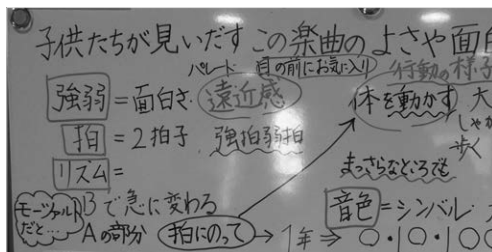 子供たちが見いだす この楽曲の よさや面白
パレード 目の前にお気に入り 行動の様子
強弱 = 面白さ 遠近感 体を動かす 大
拍 = 2拍子 強拍弱拍 歩く
リズム = まっさらなところで
モーツァルトだと… Bで急に変わる 音色 = シンバル・
Aの部分 拍にのって → 1年 ⇒ ○・○・○○